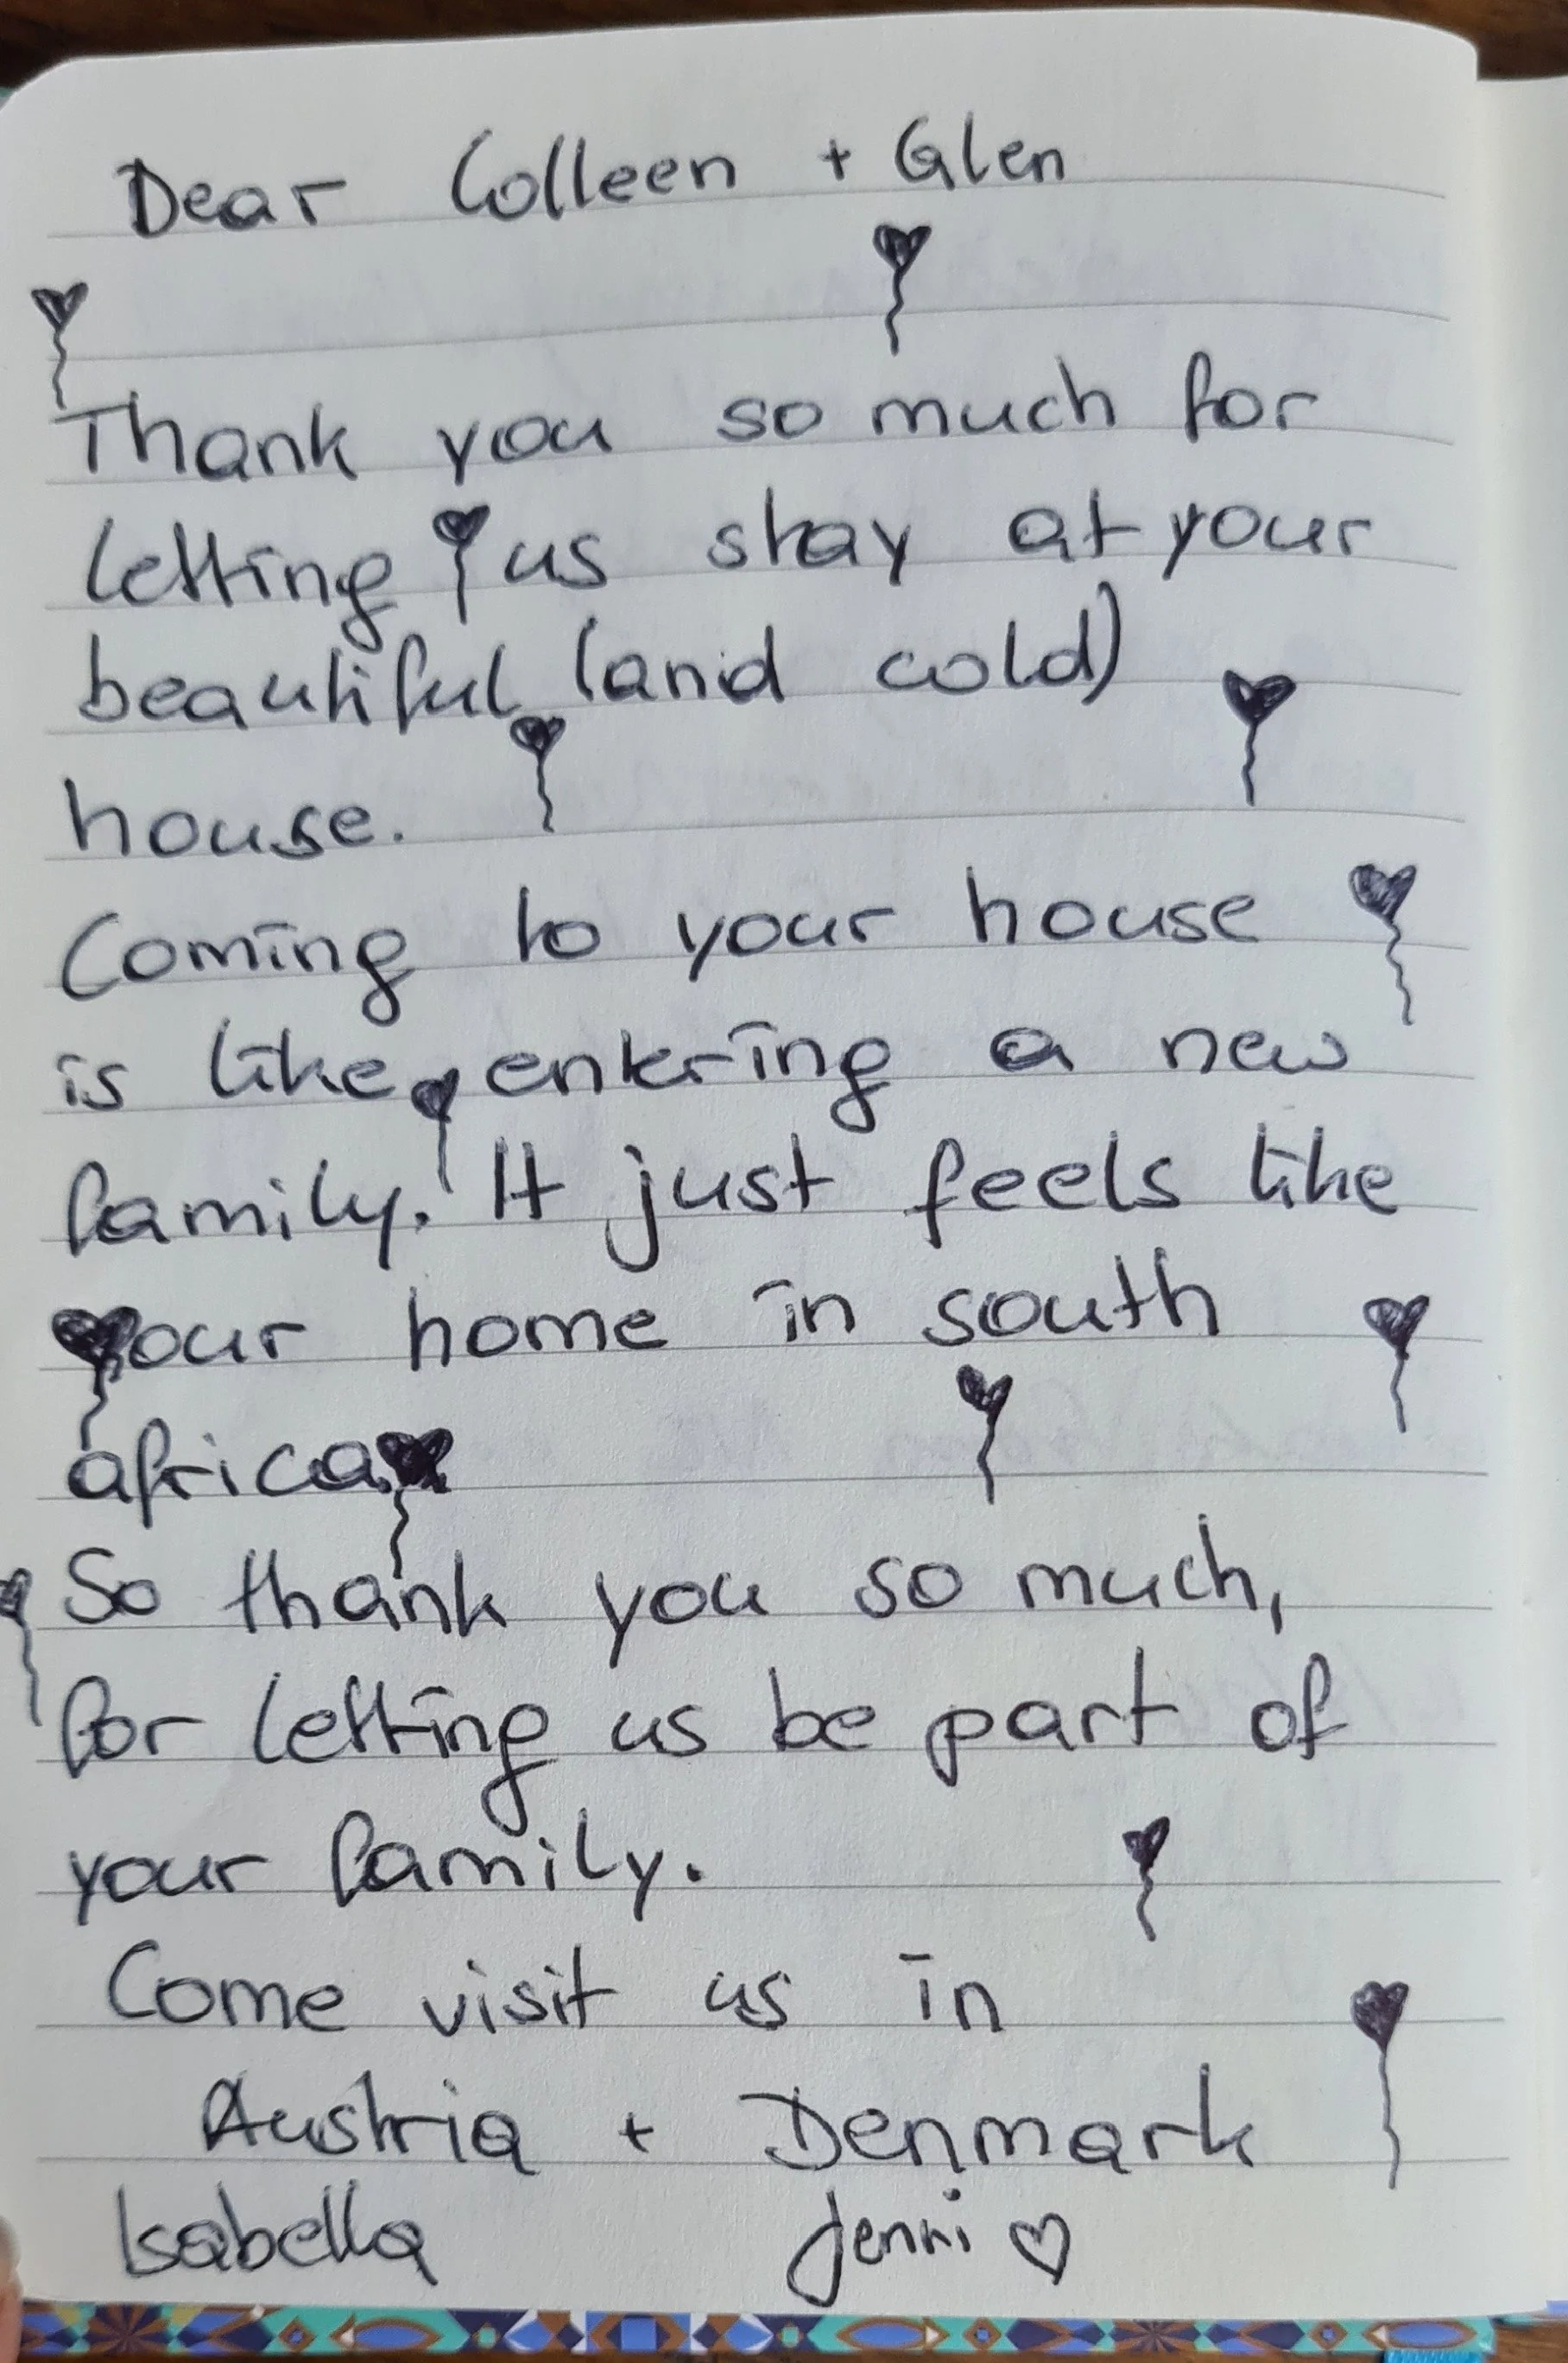 Dear Colleen + Glen
Thank you so much for
letting us stay at your
beautiful (and cold)
house.
Coming to your house
is like entering a new
family. It just feels like
our home in south
africa
So thank you so much,
for letting us be part of
your family.
Come visit us in
Austria + Denmark
Isabella Jenni ♡